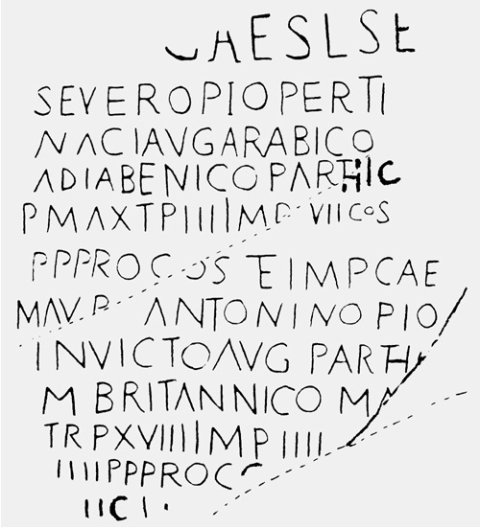 CAESLSE
SEVEROPIOPERTI
NACIAVGARABICO
ADIABENICOPARTHIC
PMAXTPIIIIIMP VIICOS
PPPROCOSETIMPCAE
MAV.R ANTONINOPIO
INVICTOAVG PARTH
M BRITANNICO MA
TRPXVIIIIIMPIIII
IIIIPPPROC
IICI